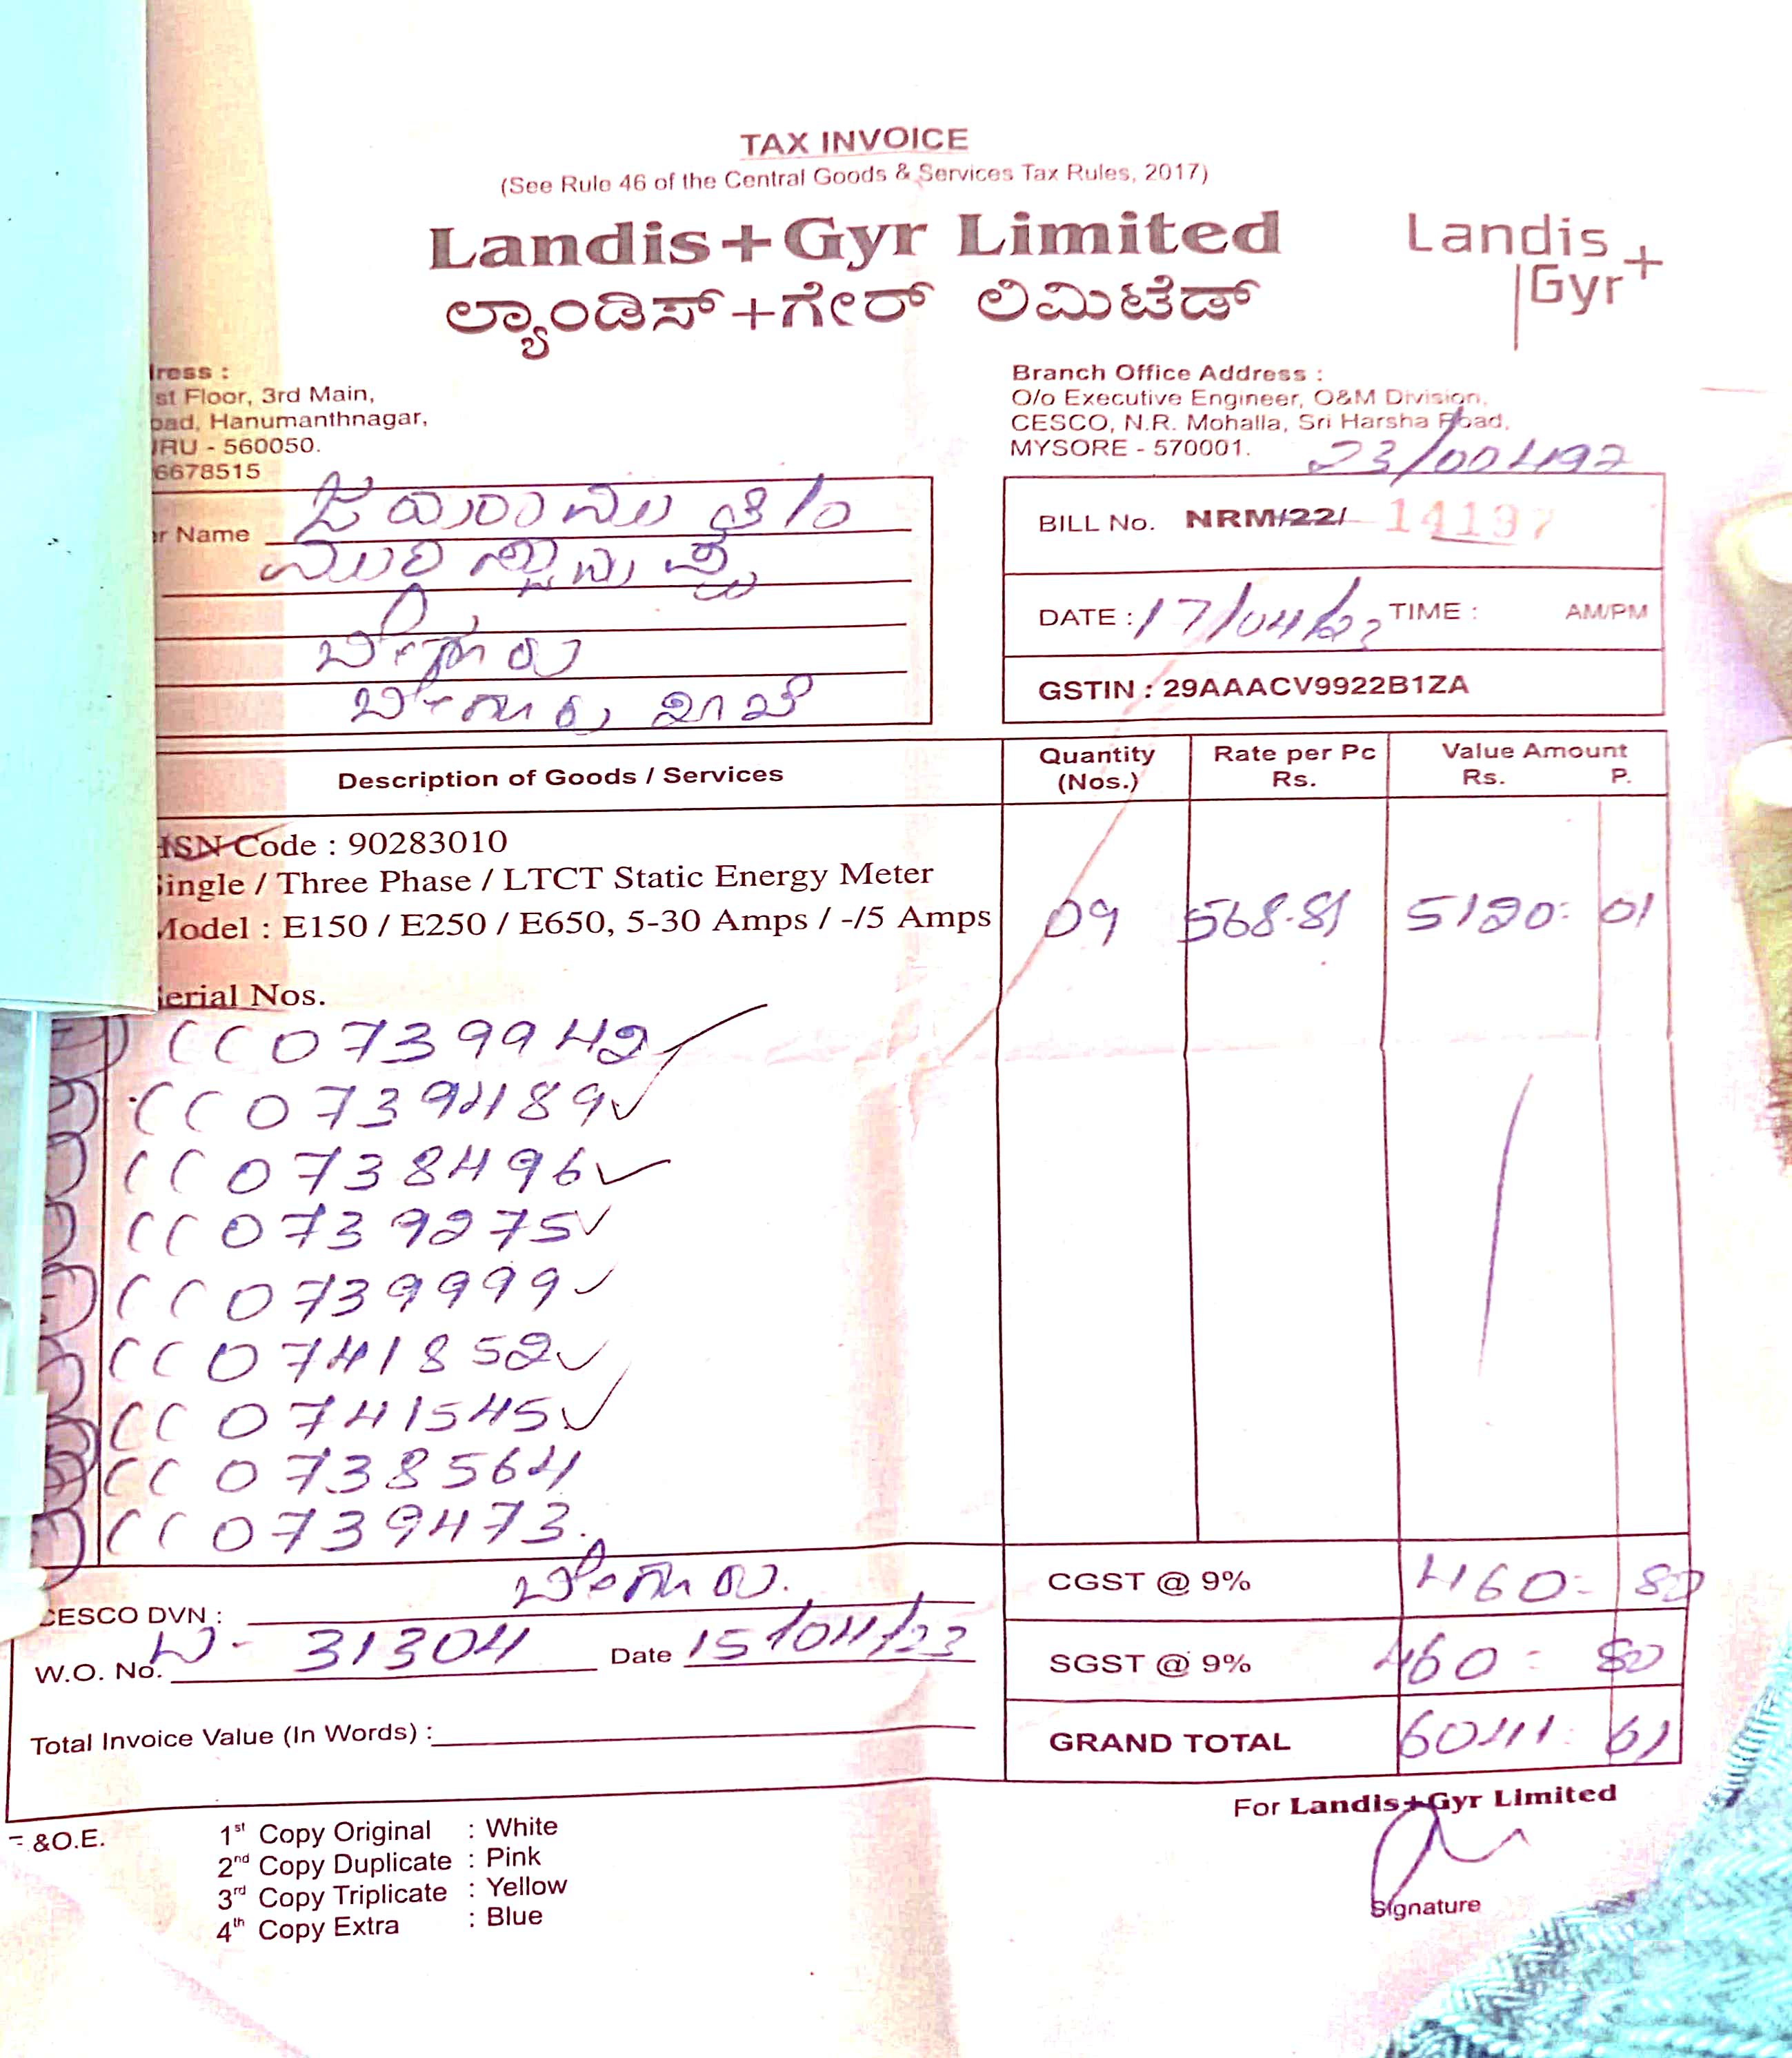 TAX INVOICE
(See Rule 46 of the Central Goods & Services Tax Rules, 2017)
Landis+Gyr Limited
ಲ್ಯಾಂಡಿಸ್+ಗೇರ್ ಲಿಮಿಟೆಡ್
Landis
Gyr+
dress :
st Floor, 3rd Main,
oad, Hanumanthnagar,
URU - 560050.
6678515
Branch Office Address :
O/o Executive Engineer, O&M Division,
CESCO, N.R. Mohalla, Sri Harsha Road,
MYSORE - 570001.
23/004197
er Name ಜಯರಾಮು
ಬೇಗೂರು
ಬೇಗೂರು ಶಾಖೆ
BILL No. NRM/22/ 14197
DATE : 17/04/23 TIME : AM/PM
GSTIN : 29AAACV9922B1ZA
Description of Goods / Services
Quantity (Nos.)
Rate per Pc Rs.
Value Amount Rs. P.
HSN Code : 90283010
Single / Three Phase / LTCT Static Energy Meter
Model : E150 / E250 / E650, 5-30 Amps / -/5 Amps
09 568.89 5120: 01
Serial Nos.
CC0739942
CC0739489
CC0738496
CC0739275
CC0739999
CC0741852
CC0741545
CC0738564
CC0739473
CESCO DVN : ಬೇಗೂರು.
W.O. No. W- 31304 Date 15/04/23
Total Invoice Value (In Words) :
CGST @ 9% 460= 80
SGST @ 9% 460= 80
GRAND TOTAL 6041: 61
For Landis+Gyr Limited
Signature
E &O.E.
1st Copy Original : White
2nd Copy Duplicate : Pink
3rd Copy Triplicate : Yellow
4th Copy Extra : Blue